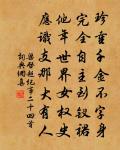 珍重千金不字身
完全自主到釵裙
他年世界女權史
應識支那大有人
梁啓超紀事二十四首
詞典網集